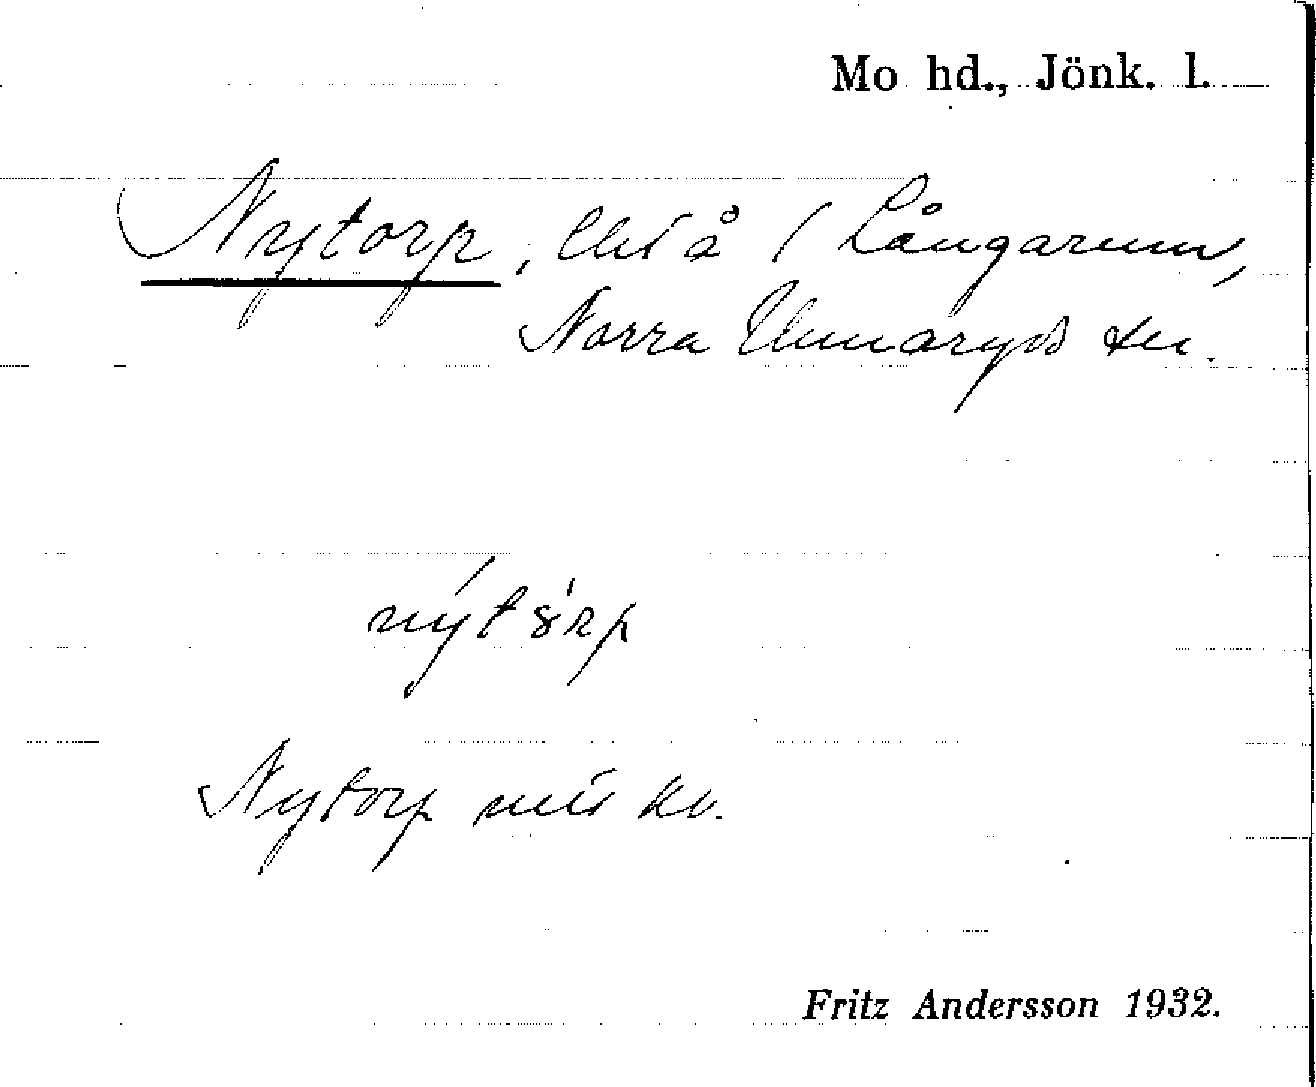 Mo hd., Jönk. l.
Nytorp, lht å 1 Långarum,
Norra Unnaryds sn.
nýt órp
Nytorp kv.
Fritz Andersson 1932.